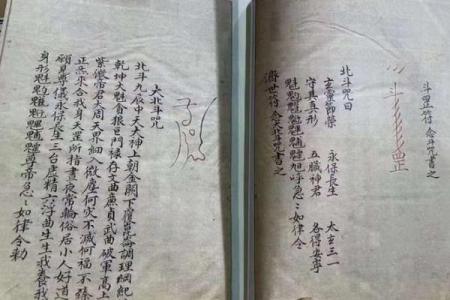 斗罡符 念斗咒書之
斗 罡
北斗咒曰
玄
節榮 永保長生 太玄三一
守其真形 五臟神君 各得安寧
急：：如律令
濟世符 念大斗咒書之
大北斗咒
北斗九辰中天大神上朝金闕下覆崑崙調理綱紀
乾坤大魁貪狼巨門祿存文曲廉貞武曲破軍高上
玉皇紫微帝君大周天界細入微塵何灾不滅何福不臻
元皇正炁來合我身天罡所指晝夜常輪俗居小人好道求靈
願見尊儀永保長生三台虛精六淳曲生生我養我護我
身形
尊帝急：：如律令勅